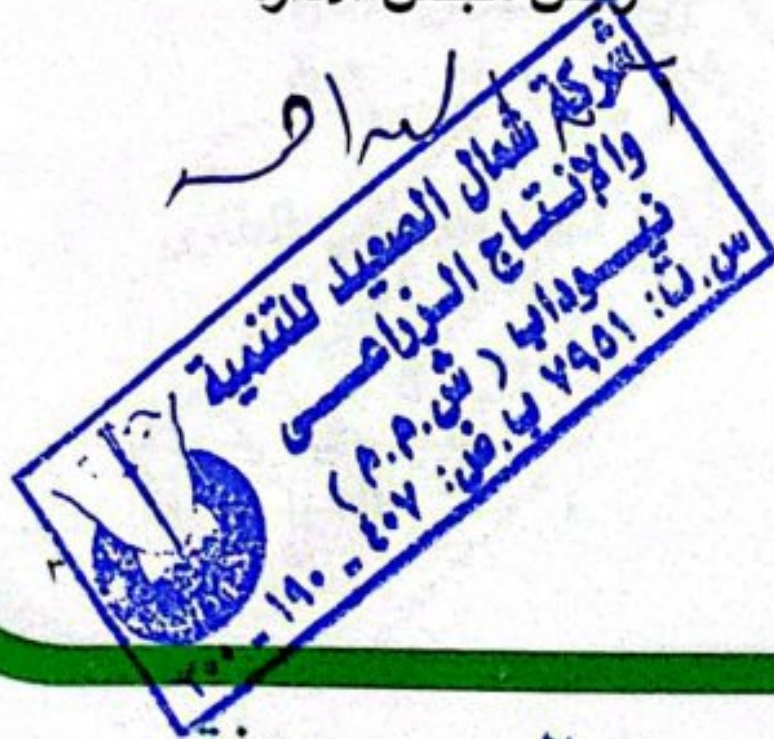 شركة شمال الصعيد للتنمية
والإنتاج الزراعى
نيوداب ( ش.م.م )
س.ت: ٧٩٥١ ب.ض: ٤٠٧ - ١٩٠ - ٢٠٠